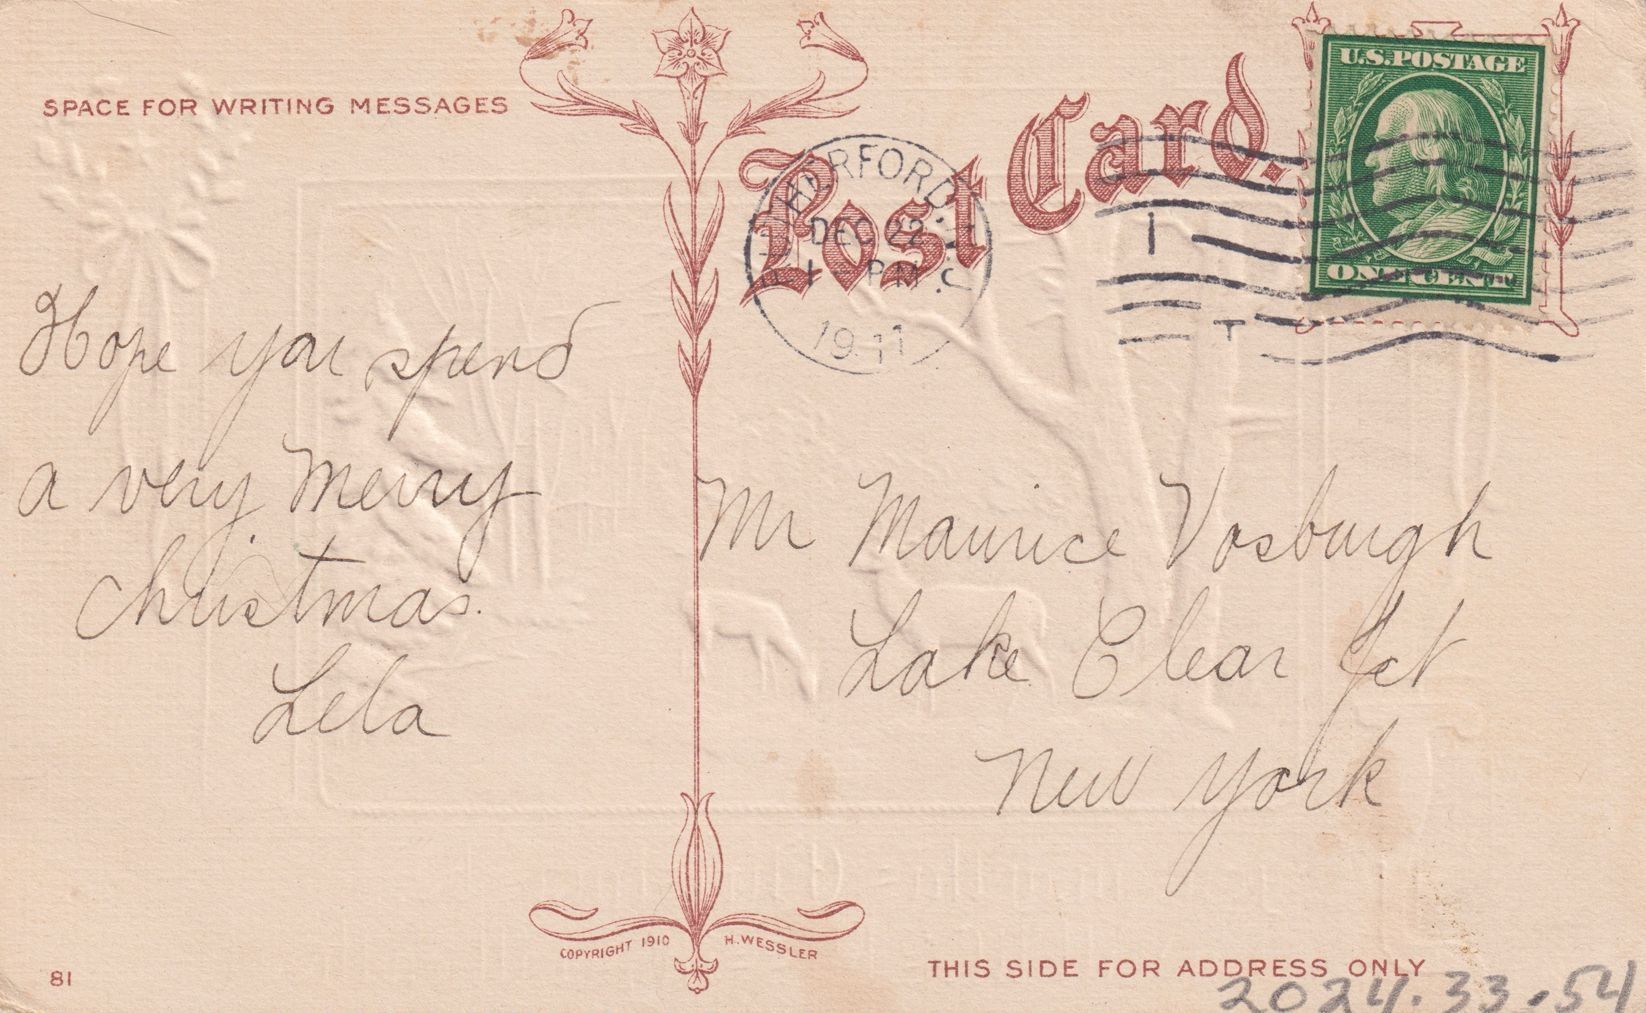 SPACE FOR WRITING MESSAGES
Post Card.
U.S.POSTAGE
ONE CENT
RUTHERFORD, N.J.
DEC 22
1-PM
1911
1
T
Hope you spend
a very Merry
Christmas.
Lela
Mr Maurice Vosburgh
Lake Clear Jct
New York
COPYRIGHT 1910 H. WESSLER
81
THIS SIDE FOR ADDRESS ONLY
2024.33.54